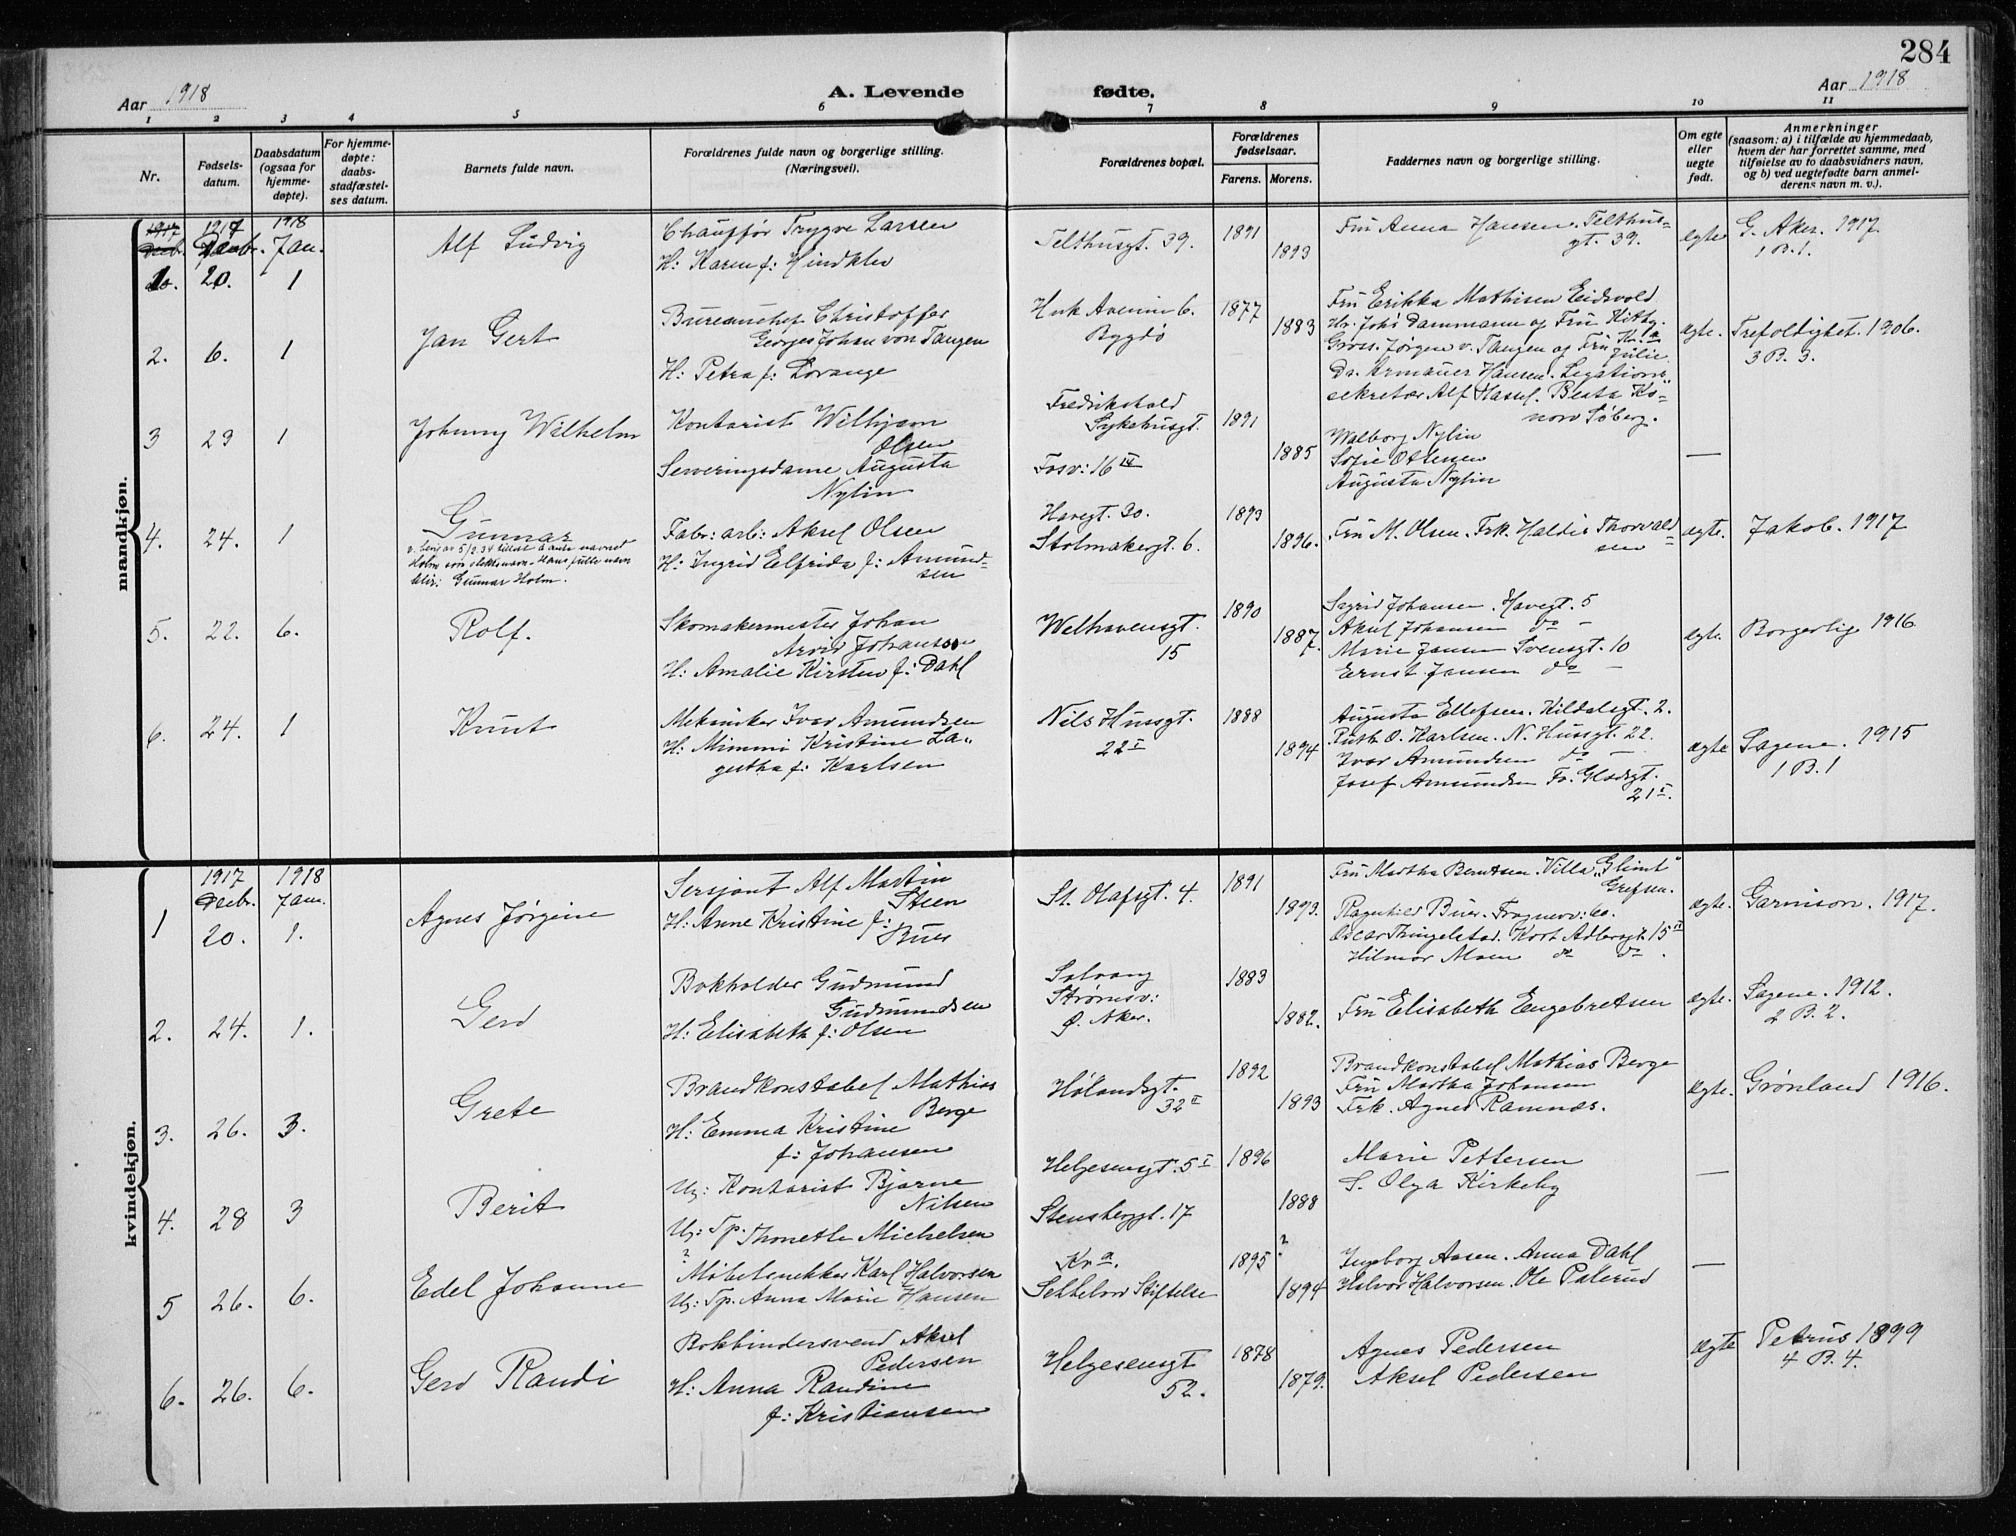 284
Aar 1918
A. Levende
fødte.
Aar 1918
1 2 3 4 5 6 7 8 9 10 11
Nr.
Fødsels-
datum.
Daabsdatum
(ogsaa for
hjemme-
døpte).
For hjemme-
døpte:
daabs-
stadfæstel-
ses datum.
Barnets fulde navn.
Forældrenes fulde navn og borgerlige stilling.
(Næringsvei).
Forældrenes bopæl.
Forældrenes
fødselsaar.
Farens. Morens.
Faddernes navn og borgerlige stilling.
Om egte
eller
uegte
født.
Anmerkninger
(saasom: a) i tilfælde av hjemmedaab,
hvem der har forrettet samme, med
tilføielse av to daabsvidners navn,
og b) ved uegtefødte barn anmel-
derens navn m. v.).
mandkjøn.
1917 1917 1918
Decb. Jan.
1. 20. 1
Alf Ludvig
Chauffør Trygve Larsen
H: Karen f: Hindklev
Telthusgt. 39.
1891
1893
Fru Anna Hansen. Telthus-
gt. 39.
egte
G. Aker. 1917
1 B. 1.
2. 6. 1
Jan Gert
Bureauchef Christoffer
Georges Johan von Tangen
H: Petra f: Lorange
Huk Avenue 6.
Bygdø
1877
1883
Fru Erikka Mathisen Eidsvold
Hr. Johs Dammann og Fru Kitty.
Gross. Jørgen v. Tangen og Fru Julie
Dr. Armauer Hansen. Legations-
sekretær Alf Hassel. Beata Ko-
now Søberg.
egte.
Trefoldighet. 1906.
3 B. 3.
3 29 1
Johnny Wilhelm
Kontorist Wilhjam
Olsen
Serveringsdame Augusta
Nylin
Fredrikshald
Sykehusgt.
Fosv: 16 IV
1891
1885
Walborg Nylin
Sofie Ottersen
Augusta Nylin
—
4. 24. 1
Gunnar
v. bev. av 5/2 34 tillatt å anta navnet
Holm som slektsnavn. Hans fulle navn
blir: Gunnar Holm.
Fabr: arb: Aksel Olsen
H: Ingrid Elfrida f: Amund-
sen
Havegt. 30.
Stolmakergt. 6.
1893
1896.
Fru M. Olsen. Frk. Haldis Thorvald-
sen
egte.
Jakob. 1917
5. 22. 6.
Rolf.
Skomakermester Johan
Arvid Johansen
H: Amalie Kirsten f: Dahl
Welhavensgt.
15
1890
1887.
Sigrid Johansen. Havegt. 5
Aksel Johansen do -
Marie Jansen Svensgt. 10
Ernst Jansen do -
egte.
Borgerlig 1916.
6. 24. 1
Knut
Mekaniker Ivar Amundsen
H: Mimmi Kristine La-
gertha f: Karlsen
Nils Hussgt.
22 I
1888
1894
Augusta Ellefsen. Kildalsgt. 2.
Ruth O. Karlsen. N. Hussgt. 22.
Ivar Amundsen do —
Josef Amundsen Fr. Gladsgt.
21 I.
egte
Sagene. 1915
1 B. 1
kvindekjøn.
1917 1918
Decbr. Jan.
1 20. 1.
Agnes Jørgine
Sersjant Alf Martin
Steen
H: Anne Kristine f:
Buer
St. Olafsgt. 4.
1891
1893.
Fru Martha Berntsen. Villa „Glimt"
Grefsen.
Ragnhild Buer. Frognerv: 60.
Oscar Thingelstad. Kort Adlersgt. 15 II
Hilmar Moen do do.
egte.
Garnison. 1917.
2. 24. 1.
Gerd
Bokholder Gudmund
Gudmundsen
H: Elisabeth f: Olsen
Solvang
Strømsv:
Ø. Aker.
1883
1882.
Fru Elisabeth Engebretsen
egte.
Sagene. 1912.
2 B. 2.
3. 26. 3.
Grete
Brandkonstabel Mathias
Berge
H: Emma Kristine
f: Johansen
Hølandsgt.
32 II
1892
1893
Brandkonstabel Mathias Berge
Fru Martha Johansen
Frk. Agnes Ramnæs.
egte.
Grønland 1916.
4. 28 3
Berit
Ug: Kontorist Bjarne
Nilsen
Ug: Tp. Thonette Michelsen
Helgesensgt. 5 I
Stensberggt. 17
1896
1888
Marie Pettersen
S. Olga Kirkeby
—
5 26. 6.
Edel Johanne
? Møbelsnekker Karl Halvorsen
Ug: Tp. Anna Marie Hansen
Kr.a.
Sekkelow Stiftelse
1895 ?
1894
Ingborg Aasen. Anna Dahl
Halvor Halvorsen. Ole Paterud
—
6. 26. 6.
Gerd Randi
Bokbindersvend Aksel
Pedersen
H: Anna Randine
f: Kristiansen
Helgesensgt
52.
1878
1879.
Agnes Pedersen
Aksel Pedersen
egte
Petrus 1899
4 B. 4.